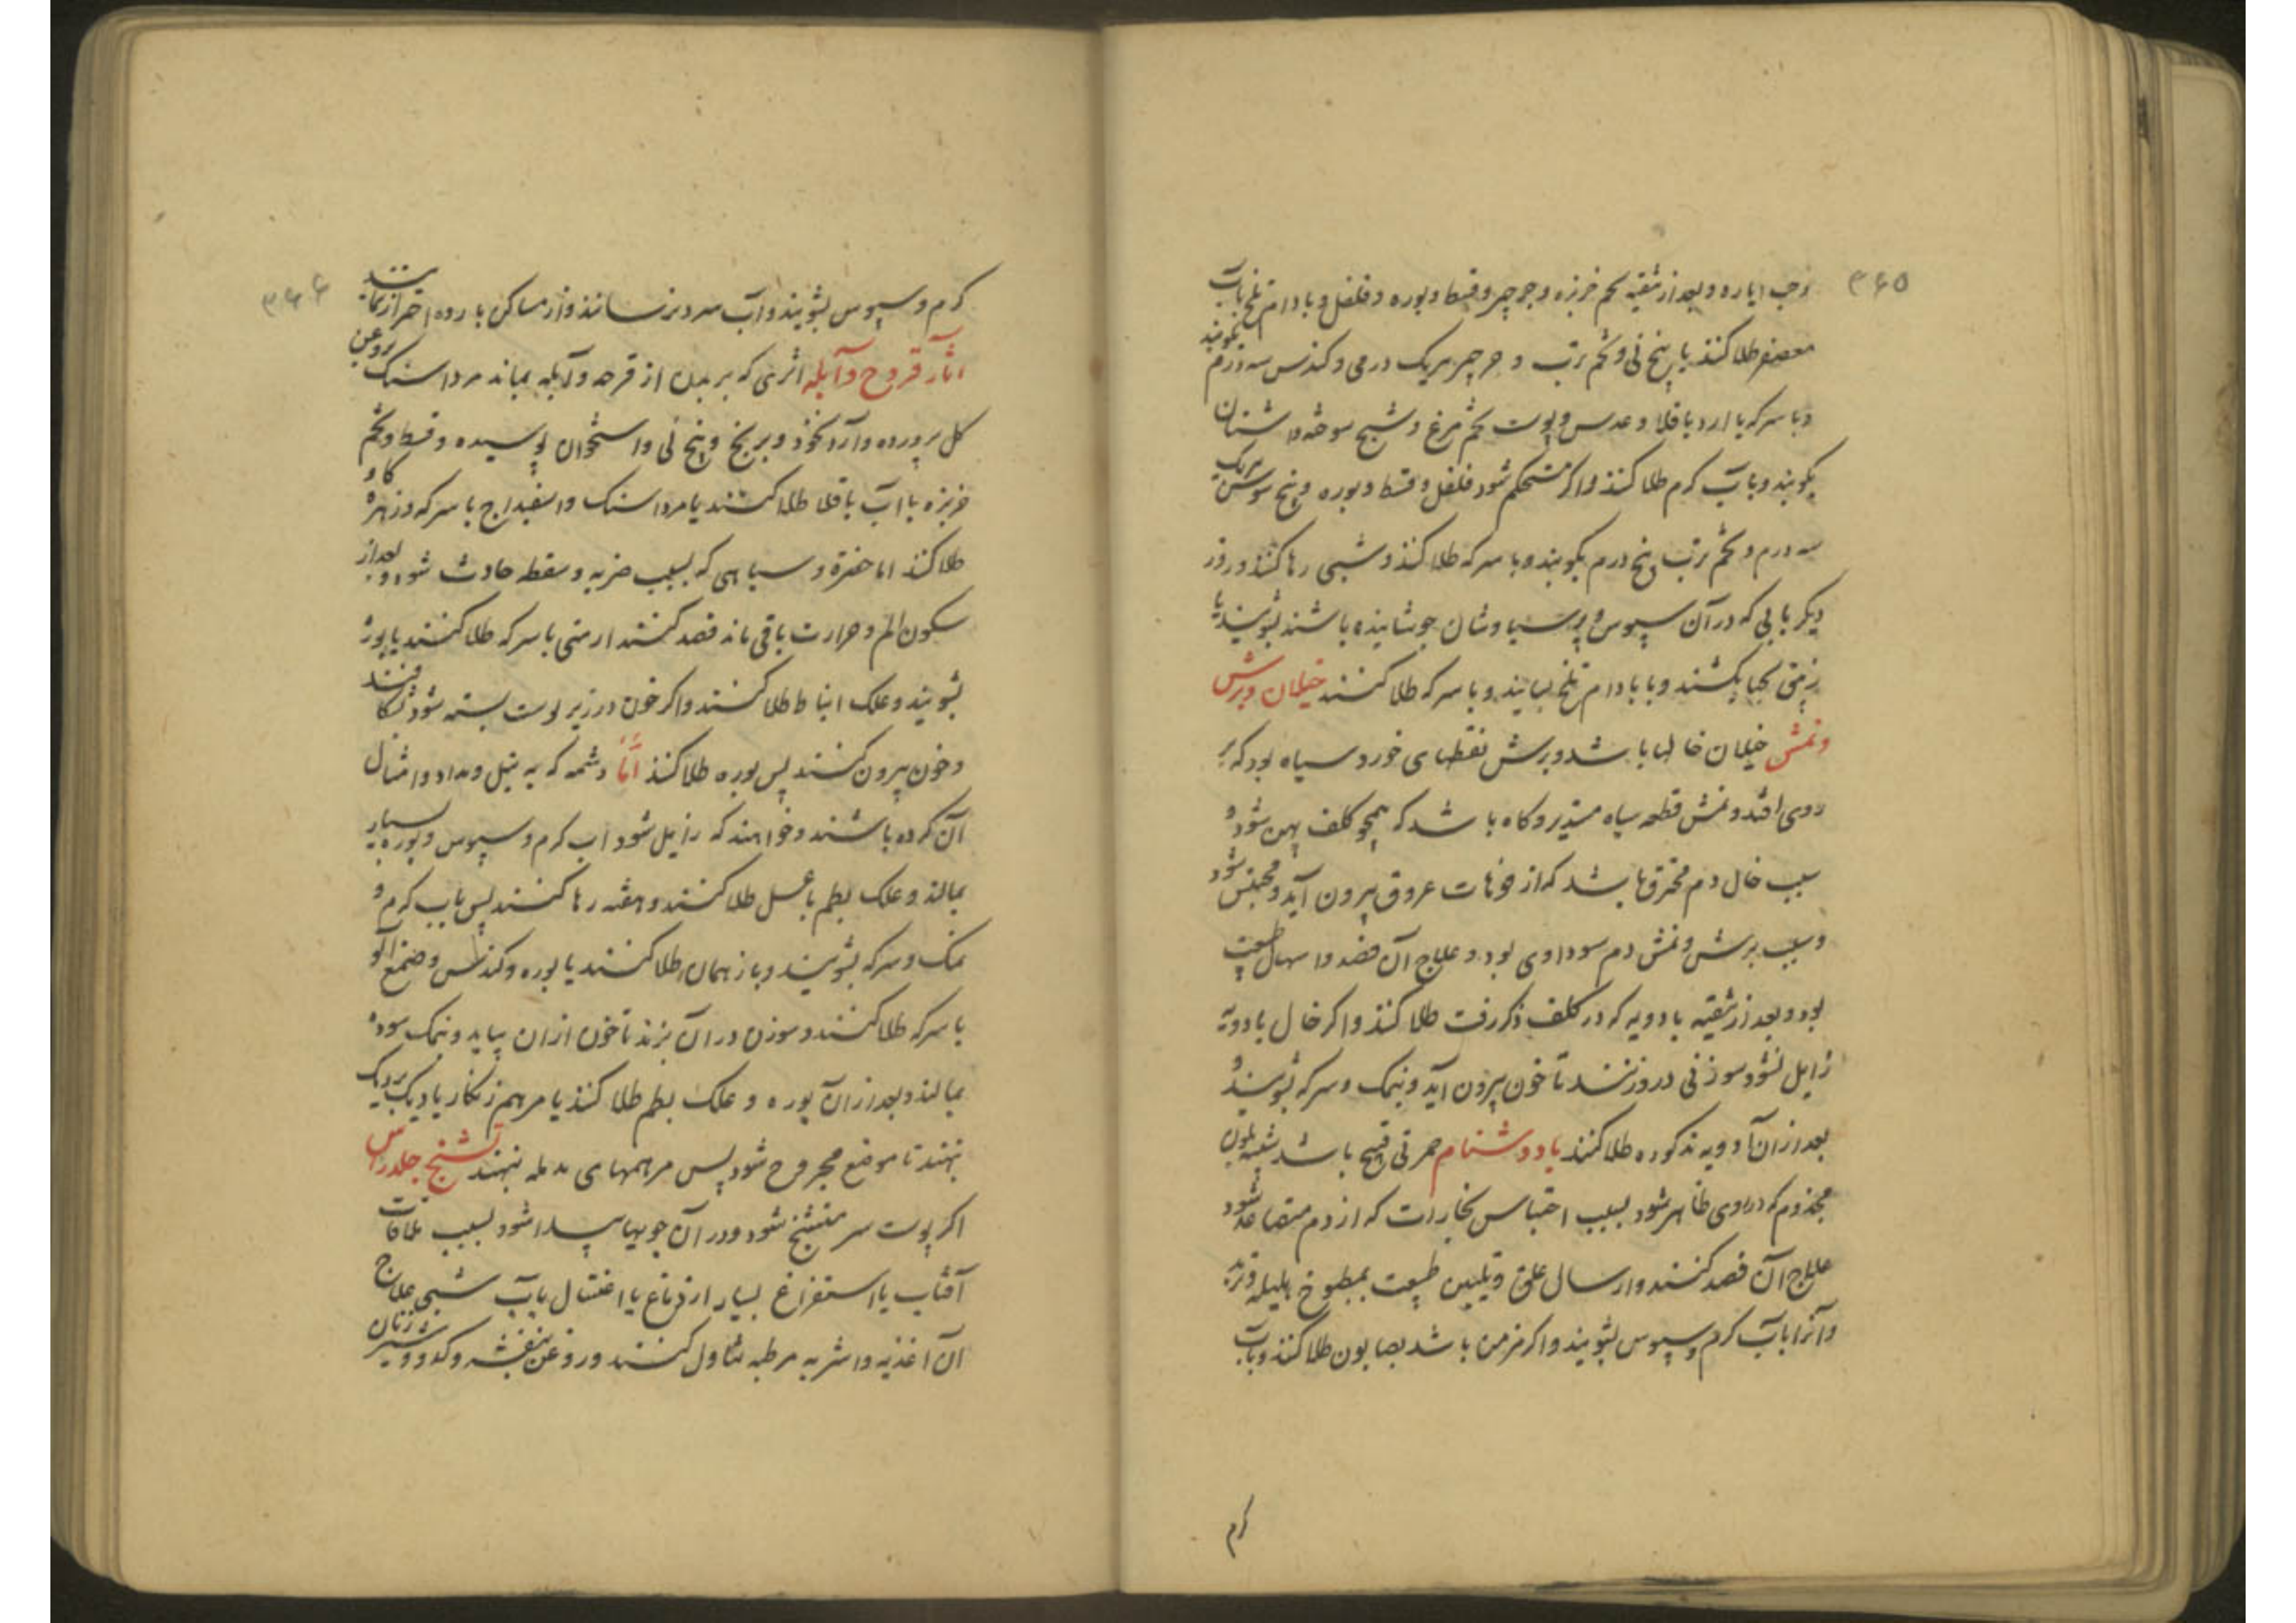 ۳۶۵
وحب ایاره و بعد از تنقیه تخم خربزه و جرجیر و قسط و بوره و فلفل و بادام تلخ بآب
معصفر طلا کنند یا بیخ نی و تخم ترب و جرجیر هریک درمی و کندس سه درم بکوبند
و با سرکه یا ارد باقلا و عدس و پوست تخم مرغ و شیح سوخته و اشنان
بکوبند و بآب کرم طلا کنند و اکر مستحکم شود فلفل و قسط و بوره و بیخ سوسن هریک
سه درم و تخم ترب پنج درم بکوبند و با سرکه طلا کنند و شبی رها کنند و روز
دیکر بابی که در آن سپوس و پرسیاوشان جوشانیده باشند بشویند یا
زیبق بحنا بکشند و با بادام تلخ بسایند و با سرکه طلا کنند خیلان و برش
و نمش خیلان خالها باشد و برش نقطهای خورد سیاه بود که بر
روی افتد و نمش قطعه سیاه مستدیر و کاه باشد که همچو کلف پهن شود و
سبب خال دم محترق باشد که از فوهات عروق بیرون آید و محتبس شود
و سبب برش و نمش دم سوداوی بود و علاج آن فصد و اسهال طبیعت
بود و بعد از تنقیه بادویه که در کلف ذکر رفت طلا کنند و اکر خال بادویه
زایل نشود سوزنی درو زنند تا خون بیرون آید و بنمک و سرکه بشویند و
بعد از آن ادویه مذکوره طلا کنند بادد شنام حمرتی قبیح باشد شبیه بلون
مجذوم که در روی ظاهر شود بسبب احتباس بخارات که از دم متصاعد شود
علاج آن فصد کنند و ارسال علق و تلیین طبیعت بمطبوخ هلیله و تربد
و آنرا بآب کرم و سپوس بشویند و اکر مزمن باشد بصابون طلا کنند و بآب
کرم
۳۶۶
کرم و سپوس بشویند و آب سرد نرسانند و از مساکن بارده احتراز نمایند
آثار قروح و آبله اثری که بر بدن از قرحه و آبله بماند مرداسنک بروغن
کل پرورده و آرد نخود و برنج و بیخ نی و استخوان پوسیده و قسط و تخم
خربزه با آب باقلا طلا کنند یا مرداسنک و اسفیداج با سرکه و زهره کاو
طلا کنند اما خضرة و سیاهی که بسبب ضربه و سقطه حادث شود و بعد از
سکون الم و حرارت باقی ماند فصد کنند ارمنی با سرکه طلا کنند یا بوره
بشویند و علک انباط طلا کنند و اکر خون در زیر پوست بسته شود بشکافند
و خون بیرون کنند پس بوره طلا کنند امّا وشمه که به نیل و مداد و امثال
آن کرده باشند و خواهند که زایل شود اب کرم و سپوس و بوره بسیار
بمالند و علک بطم با عسل طلا کنند و هفته رها کنند پس باب کرم و
نمک و سرکه بشویند و باز همان طلا کنند یا بوره و کندس و صمغ آلو
با سرکه طلا کنند و سوزن در آن بزنند تا خون ازان بیاید و نمک سوده
بمالند و بعد از آن بوره و علک بطم طلا کنند یا مرهم زنکار یا دیک بر دیک
نهند تا موضع مجروح شود پس مرهمهای مدمله نهند تشنج جلد راس
اکر پوست سر متشنج شود و در آن جویها پیدا شود بسبب ملاقات
آفتاب یا استفراغ بسیار از دماغ یا اغتسال بآب شبی علاج
آن اغذیه و اشربه مرطبه تناول کنند و روغن بنفشه و کدو و شیر زنان